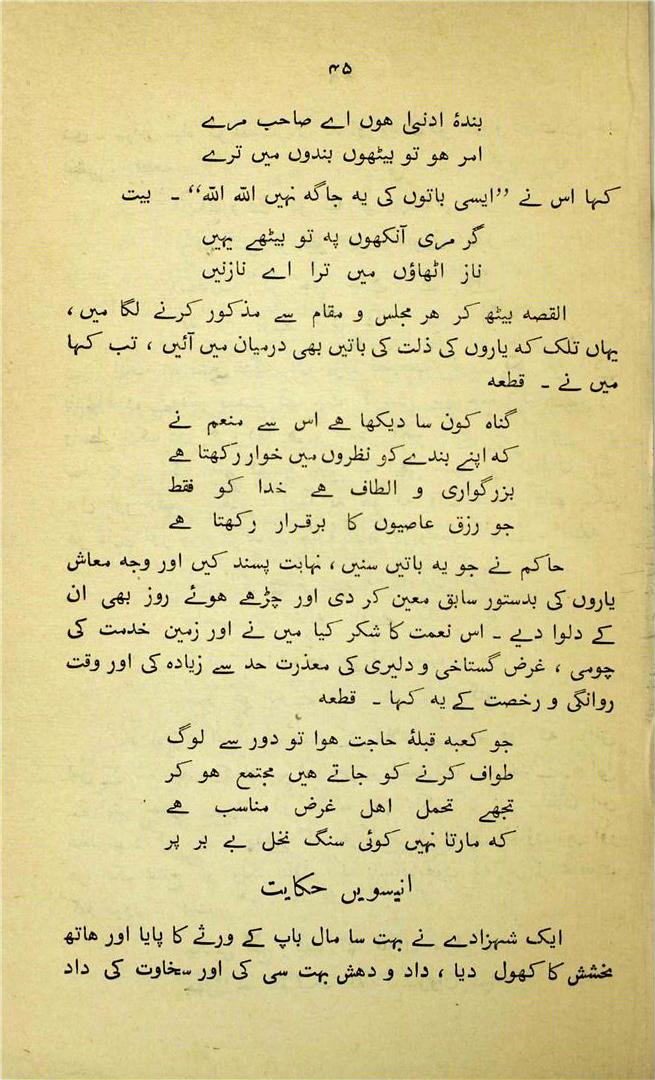 ۴۵
بندۂ ادنیٰ ھوں اے صاحب مرے
امر ھو تو بیٹھوں بندوں میں ترے
کہا اس نے ’’ایسی باتوں کی یہ جاگہ نہیں اللہ اللہ‘‘ ۔ بیت
گر مری آنکھوں پہ تو بیٹھے یہیں
ناز اٹھاؤں میں ترا اے نازنیں
القصہ بیٹھ کر ھر مجلس و مقام سے مذکور کرنے لگا میں ،
یہاں تلک کہ یاروں کی ذلت کی باتیں بھی درمیان میں آئیں ، تب کہا
میں نے ۔ قطعہ
گناہ کون سا دیکھا ھے اس سے منعم نے
کہ اپنے بندے کو نظروں میں خوار رکھتا ھے
بزرگواری و الطاف ھے خدا کو فقط
جو رزق عاصیوں کا برقرار رکھتا ھے
حاکم نے جو یہ باتیں سنیں ، نہایت پسند کیں اور وجہ معاش
یاروں کی بدستور سابق معین کر دی اور چڑھے ھوئے روز بھی ان
کے دلوا دیے ۔ اس نعمت کا شکر کیا میں نے اور زمین خدمت کی
چومی ، غرض گستاخی و دلیری کی معذرت حد سے زیادہ کی اور وقت
روانگی و رخصت کے یہ کہا ۔ قطعہ
جو کعبہ قبلۂ حاجت ھوا تو دور سے لوگ
طواف کرنے کو جاتے ھیں مجتمع ھو کر
تجھے تحمل اھل غرض مناسب ھے
کہ مارتا نہیں کوئی سنگ نخل بے بر پر
انیسویں حکایت
ایک شہزادے نے بہت سا مال باپ کے ورثے کا پایا اور ھاتھ
بخشش کا کھول دیا ، داد و دھش بہت سی کی اور سخاوت کی داد